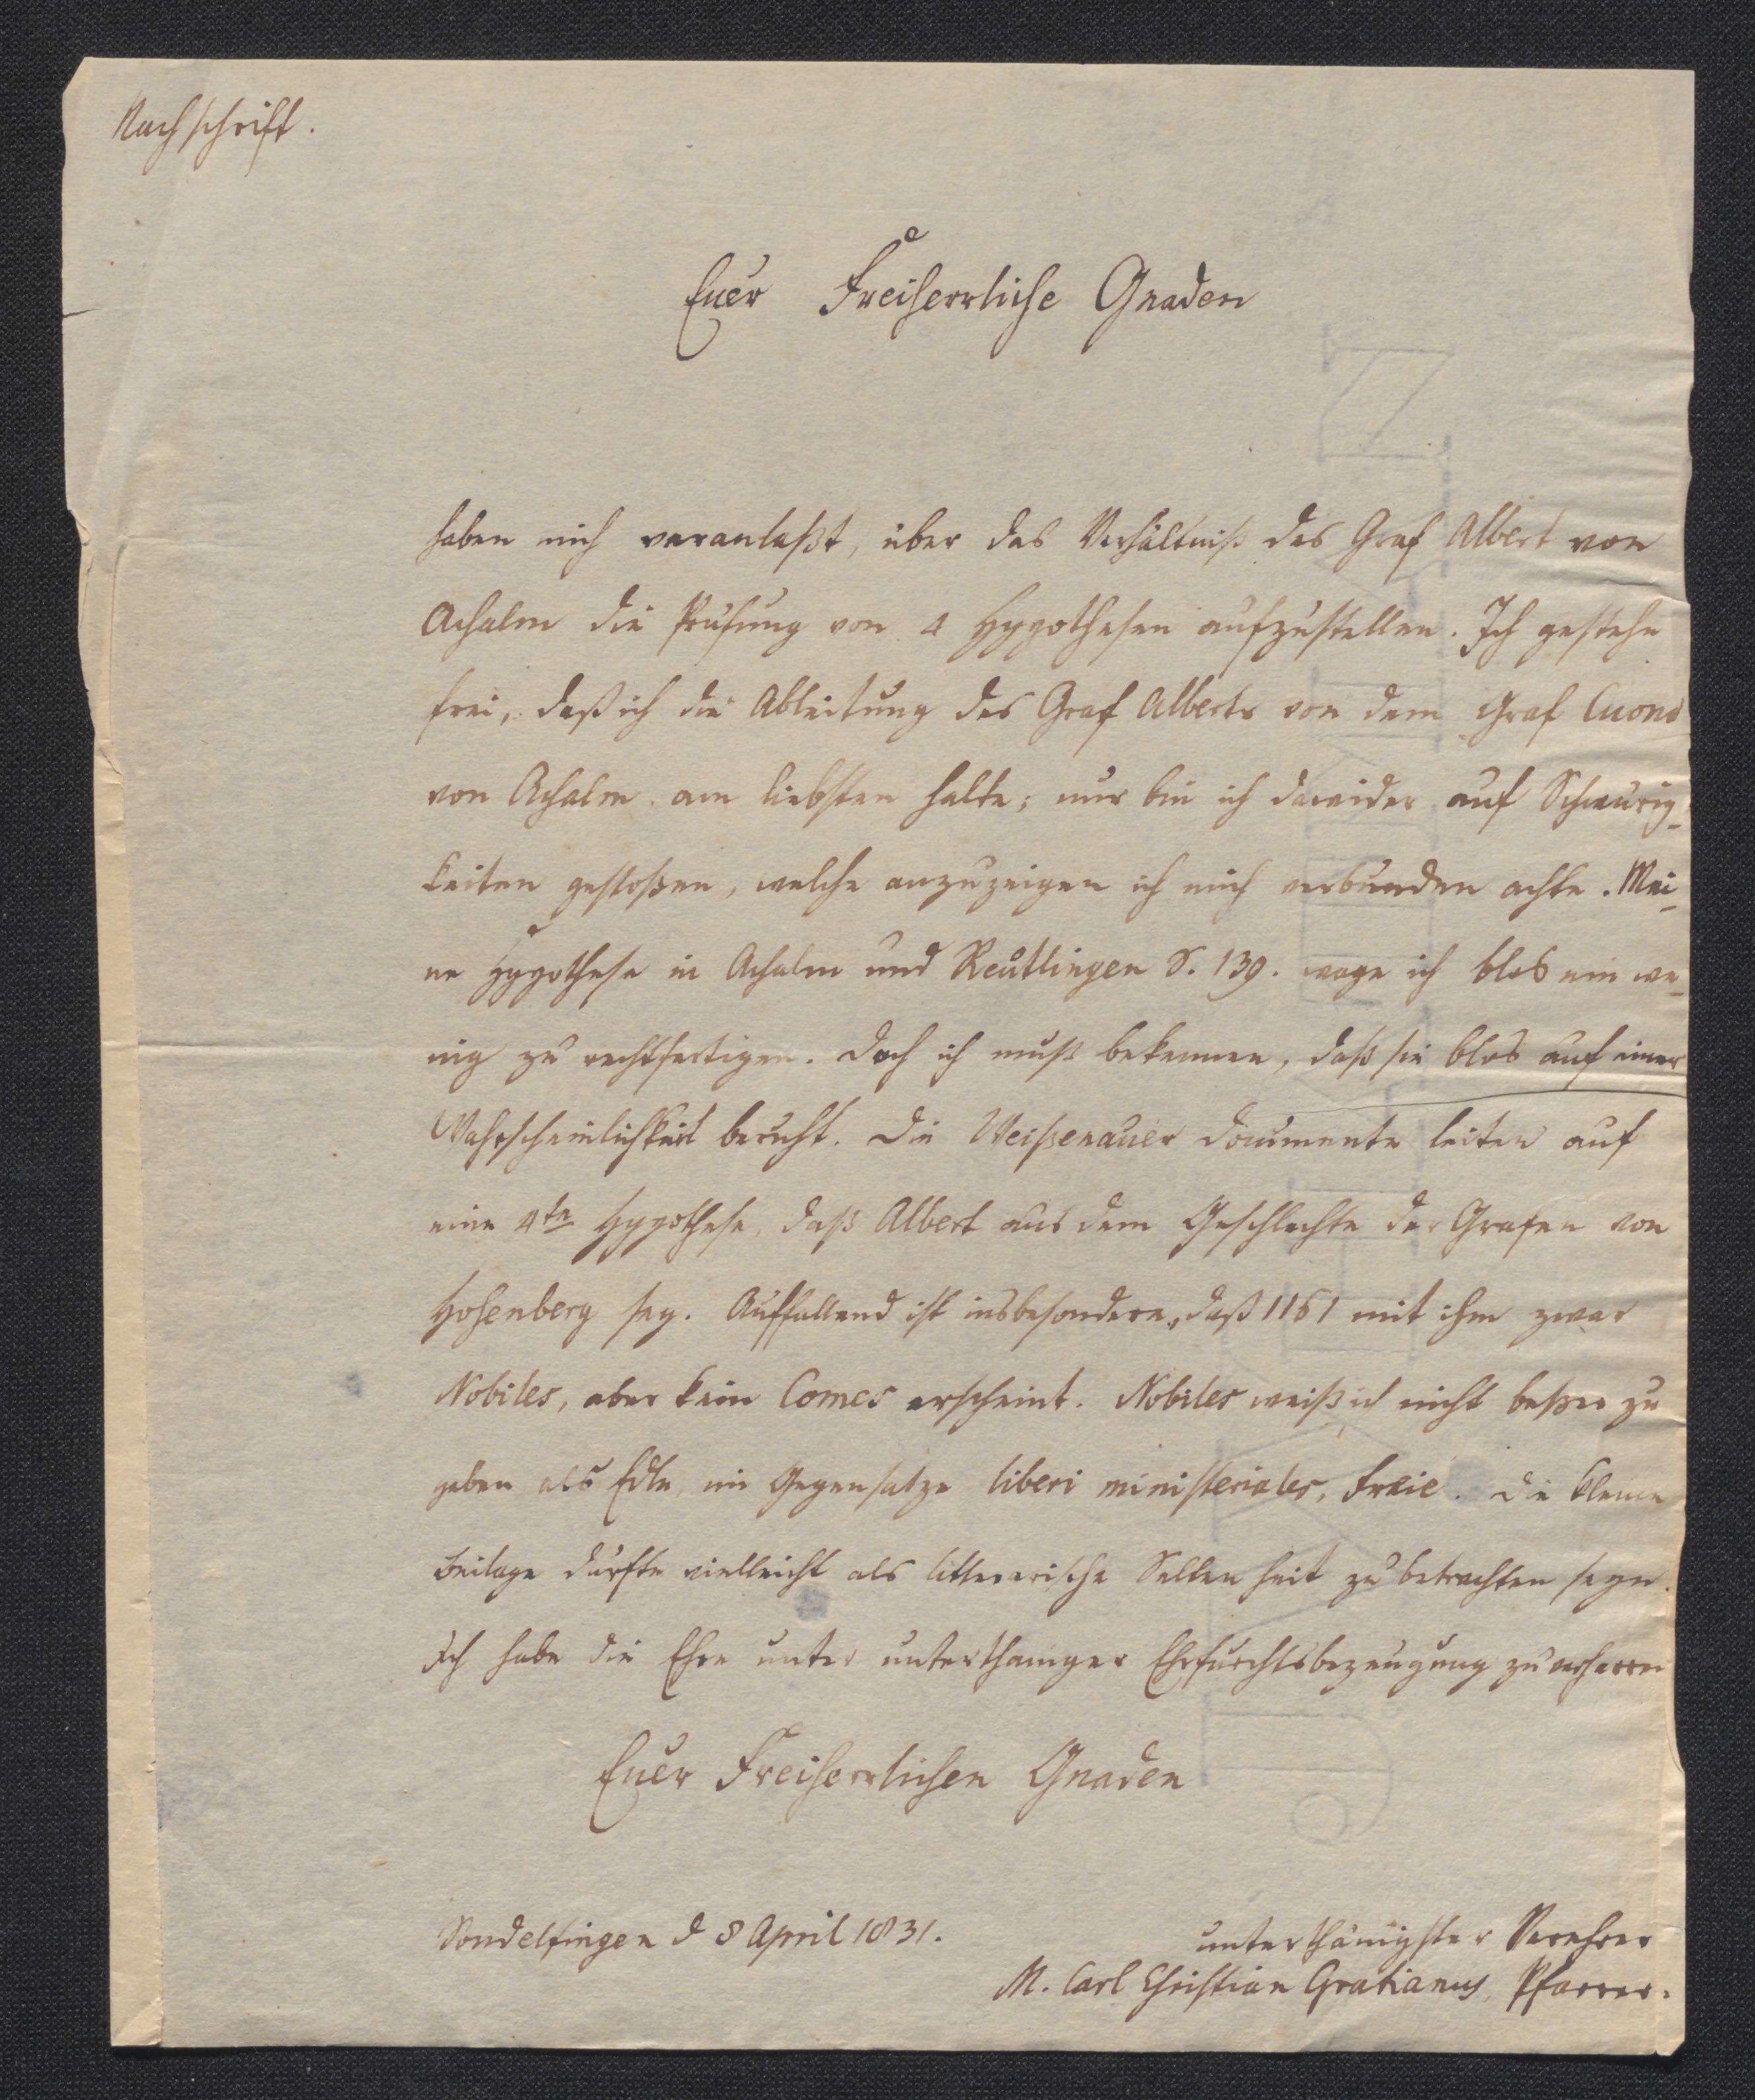 Nachschrift.
Euer Freiherrliche Gnaden
haben mich veranlaßt, über das Verhältniß des Graf Albert von
Achalm die Prüfung von 4 Hypothesen aufzustellen. Ich gestehe
frei, daß ich die Ableitung des Graf Alberts von dem Graf Cuono
von Achalm am liebsten halte; nur bin ich dawider auf Schwürig-
keiten gestoßen, welche anzuzeigen ich mich verbunden achte. Mei-
ne Hypothese in Achalm und Reutlingen S. 139. wage ich blos ein we-
nig zu rechtfertigen. Doch ich muß bekennen, daß sie blos auf einer
Wahrscheinlichkeit beruht. Die Weißenauer Documente leiten auf
eine 4te Hypothese, daß Albert aus dem Geschlechte der Grafen von
Hohenberg sey. Auffallend ist insbesondere, daß 1161 mit ihm zwar
Nobiles, aber kein Comes erscheint. Nobiles weiß ich nicht beßer zu
geben als Edle, im Gegensatze liberi ministeriales, Freie. Die kleine
Beilage dürfte vielleicht als litterarische Seltenheit zu betrachten seyn.
Ich habe die Ehre unter unterthäniger Ehrfurchtsbezeugung zu verharren
Euer Freiherrlichen Gnaden
Sondelfingen d 8 April 1831.
unterthänigster Verehrer
M. Carl Christian Gratianus, Pfarrer.